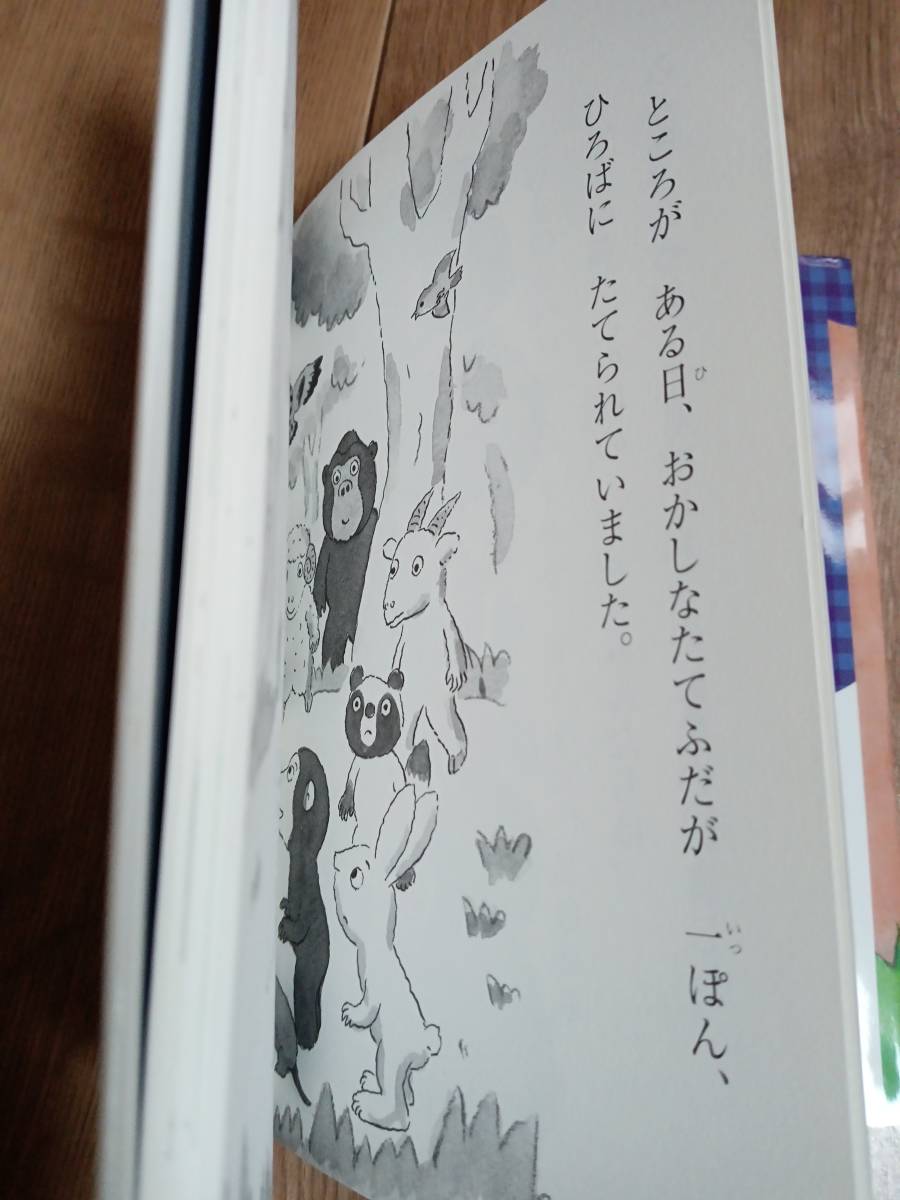 ところが　ある日、　おかしなたてふだが　一ぽん、
ひろばに　たてられていました。